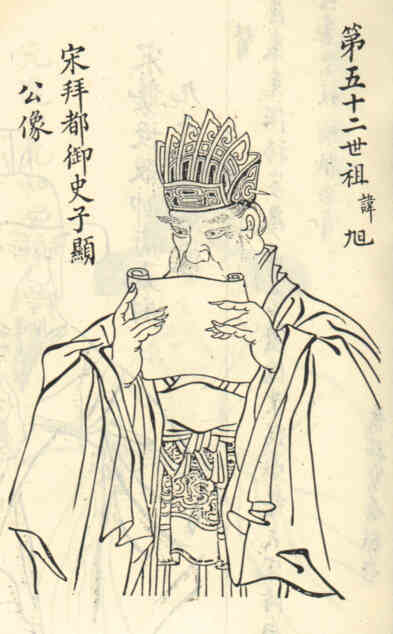 第五十二世祖諱旭
宋拜都御史子顯
公像